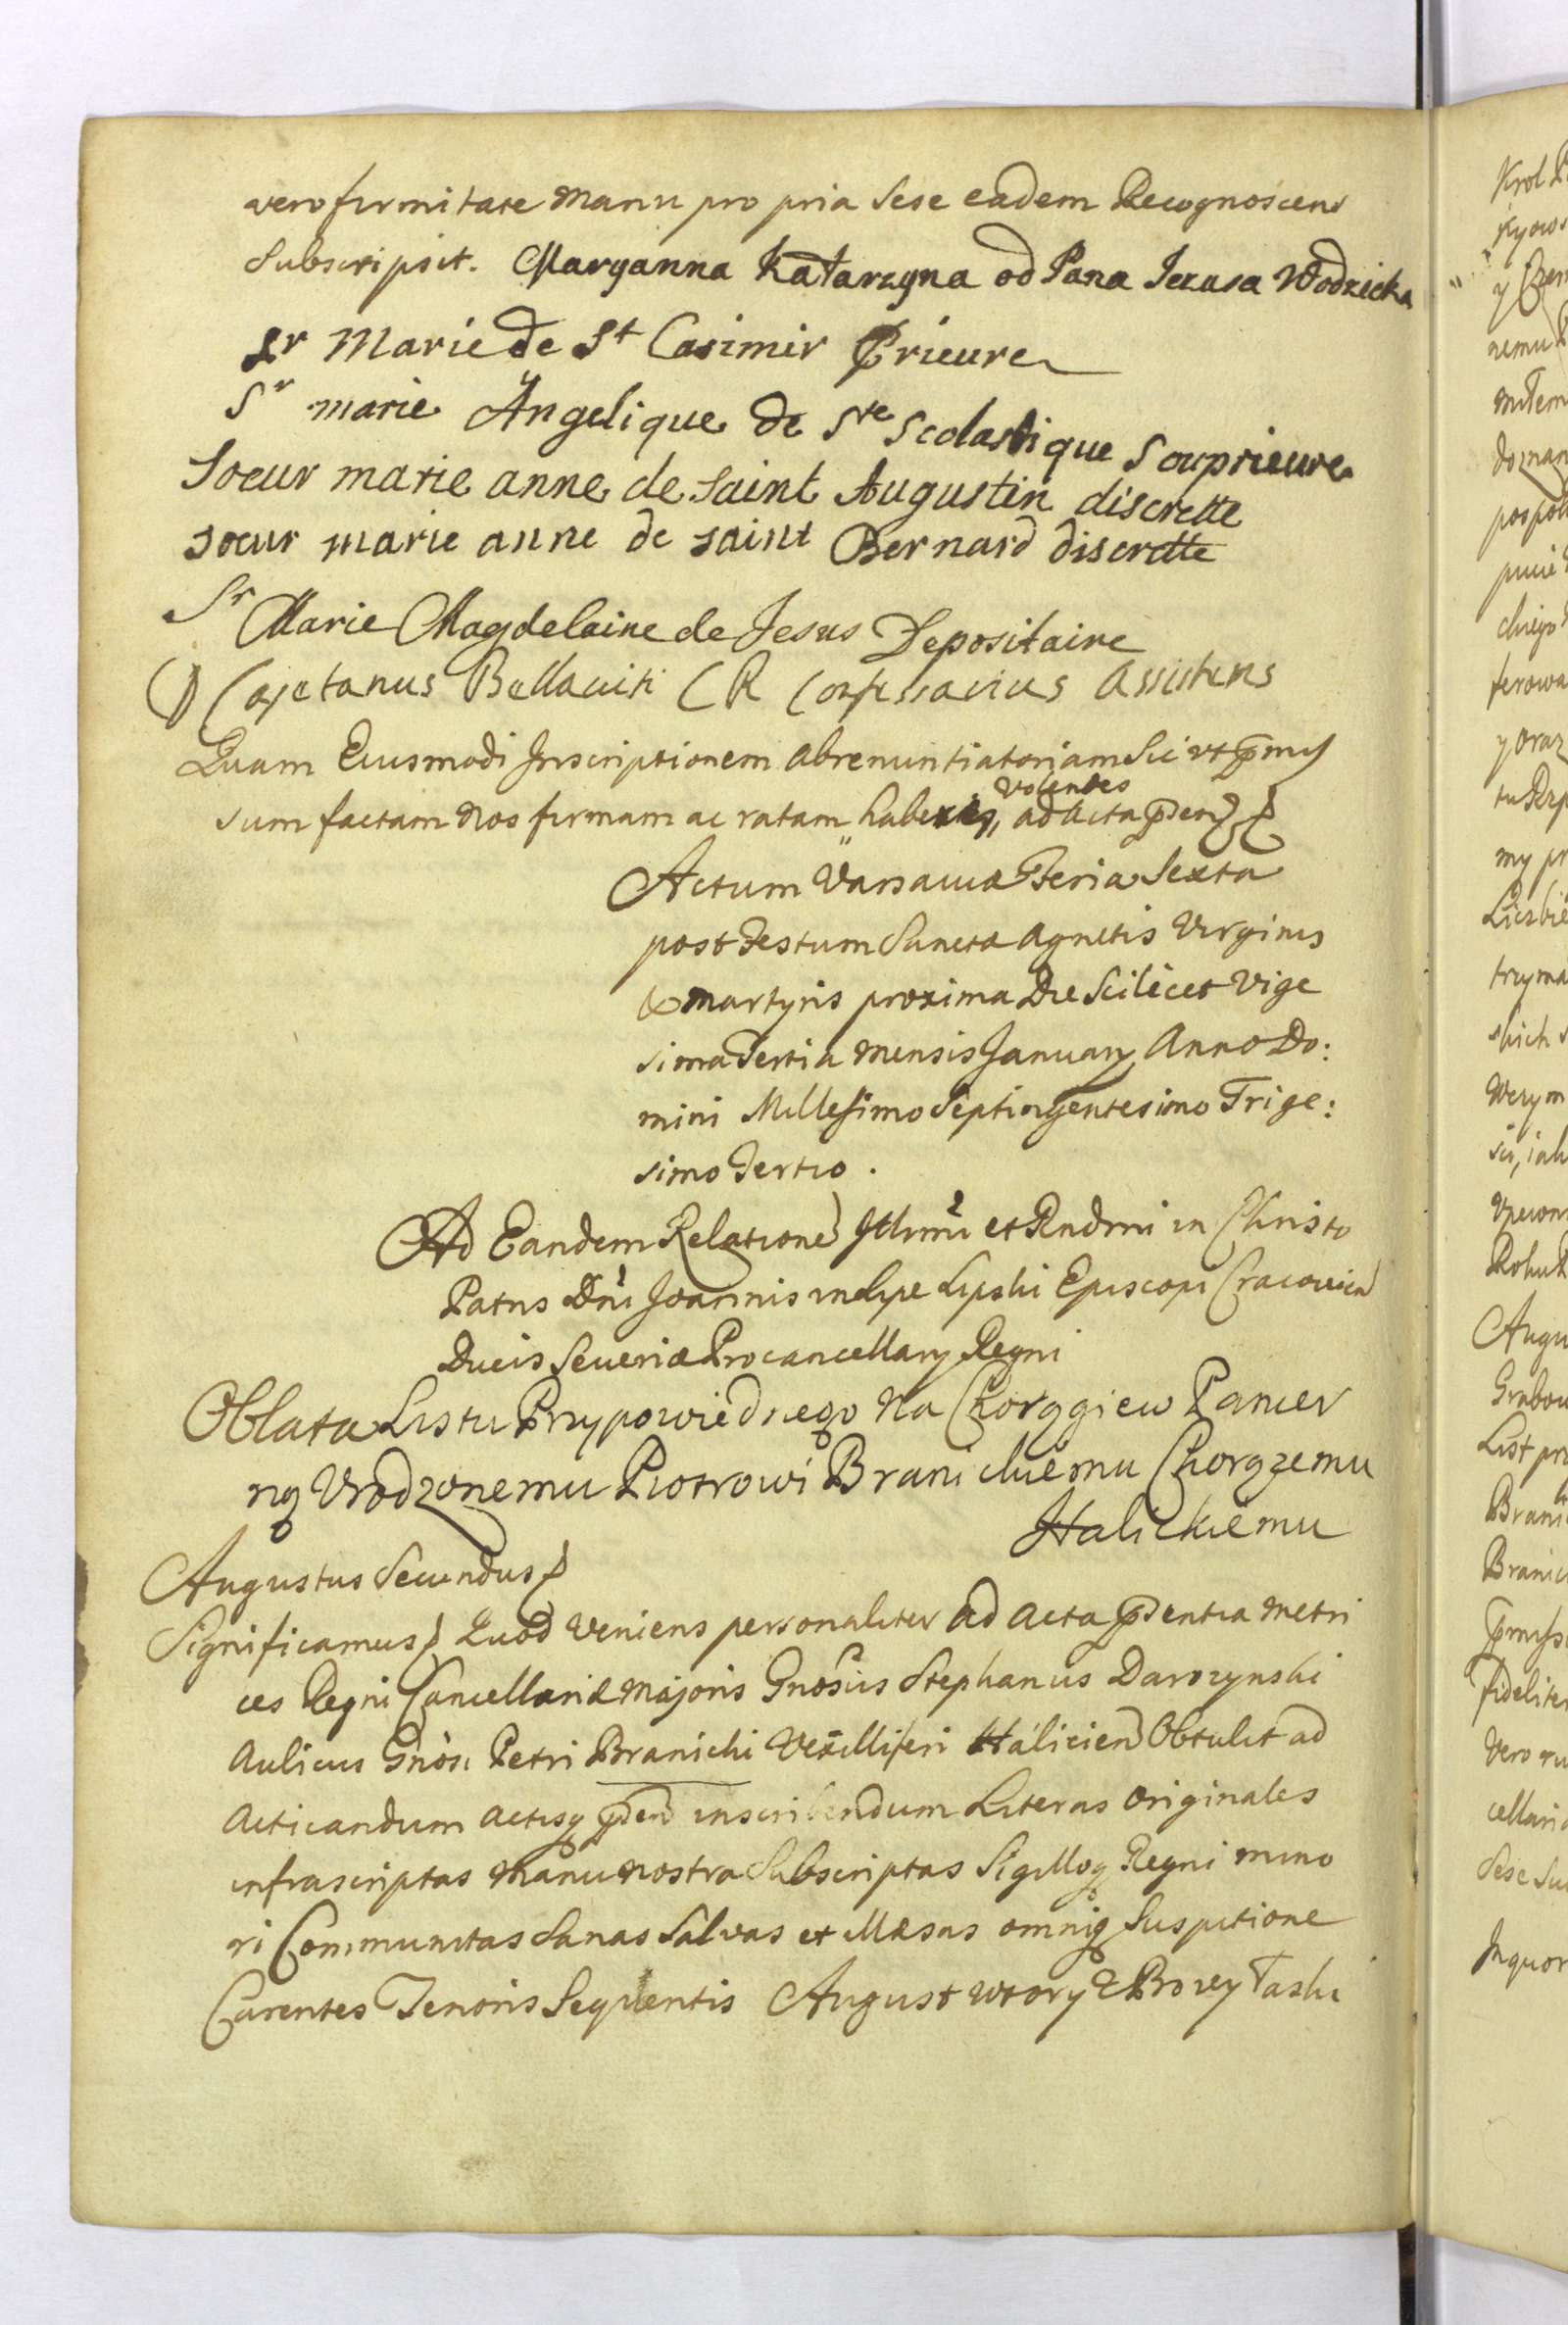 vero firmitate manu pro pria Sese eadem Recognoscens
Subscripsit. Maryanna Katarzyna od Pana Jezusa Wodzicka
Sr Marie de St Casimir Prieure
Sr marie Angelique de Ste Scolastique Souprieure
Soeur marie anne de Saint Augustin discrette
soeur marie anne de saint Bernard discrette
Sr Marie Magdelaine de Jesus Depositaire
D Cajetanus Bellaviti CR Confessarius Assistens
Quam Eiusmodi Inscriptionem abrenuntiatoriam Sic vt pmis
sum factam Nos firmam ac ratam habere, volentes ad acta pden
Actum Varsauiæ Feria Sexta
post Festum Sanctæ Agnetis Virginis
& martyris proxima Die Scilicet Vige
sima Tertia mensis January Anno Do:
mini Millesimo Septingentesimo Trige:
simo Tertio.
Ad Eandem Relatione Illrmi et Rndmi in Christo
Patris Dni Joannis in Lipe Lipski Episcopi Cracouien
Ducis Seueriæ Procancellary Regni
Oblata Listu Przypowiednego Na Chorągiew Pancer
ną Vrodzonemu Piotrowi Branickiemu Chorązemu
Halickiemu
Augustus Secundus
Significamus Quod Veniens personaliter ad acta pdentia metri
ces Regni Cancellariæ Majoris Gnosus Stephanus Darozynski
Aulicus Gnosi Petri Branicki Vexilliferi Halicien Obtulit ad
Acticandum actisq pden inscribendum Literas Originales
infrascriptas Manu nostra Subscriptas Sigilloq Regni mino
ri Communitas Sanas Salvas et Illæsas omniq Suspitione
Carentes Tenoris Sequentis August wtory & Bozey Łaski